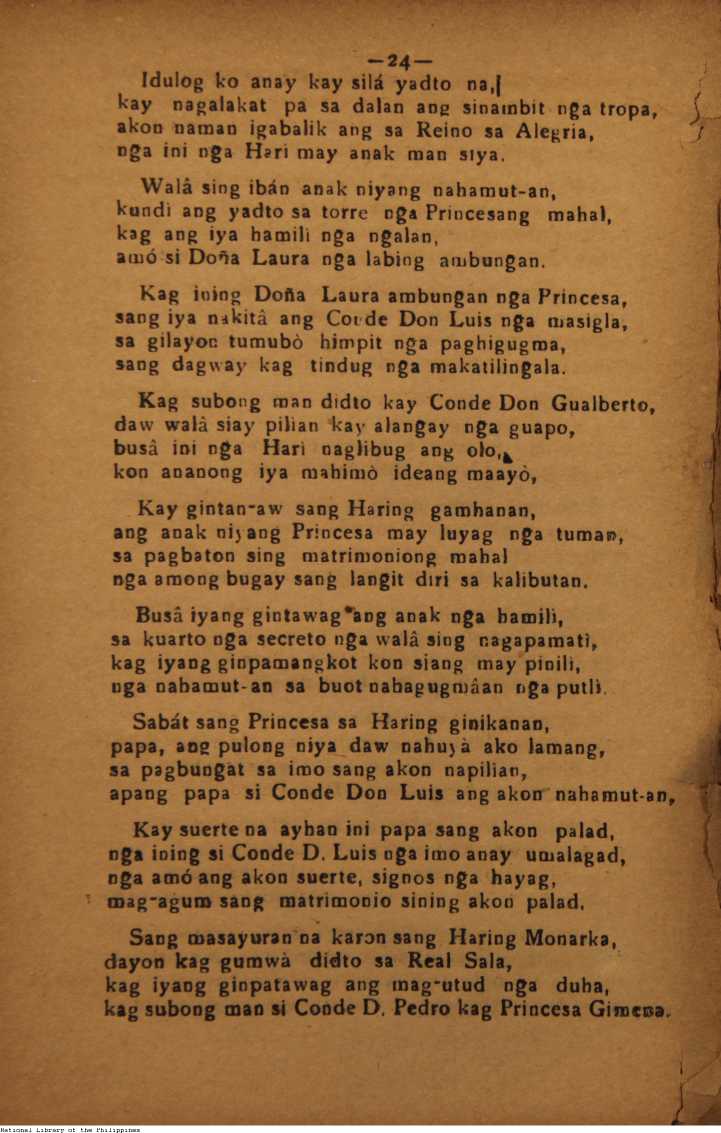 —24—
Idulog ko anay kay silá yadto na,
kay nagalakat pa sa dalan ang sinambit nga tropa,
akon naman igabalik ang sa Reino sa Alegria,
nga ini nga Hari may anak man siya.
Walâ sing ibán anak niyang nahamut-an,
kundi ang yadto sa torre nga Princesang mahal,
kag ang iya hamili nga ngalan,
amó si Doña Laura nga labing ambungan.
Kag ining Doña Laura ambungan nga Princesa,
sang iya nakitâ ang Conde Don Luis nga masigla,
sa gilayon tumubò himpit nga paghigugma,
sang dagway kag tindug nga makatilingala.
Kag subong man didto kay Conde Don Gualberto,
daw walâ siay pilian kay alangay nga guapo,
busâ ini nga Hari naglibug ang olo,
kon ananong iya mahimò ideang maayò,
Kay gintan-aw sang Haring gamhanan,
ang anak niyang Princesa may luyag nga tuman,
sa pagbaton sing matrimoniong mahal
nga among bugay sang langit diri sa kalibutan.
Busâ iyang gintawag ang anak nga hamili,
sa kuarto nga secreto nga walâ sing nagapamatì,
kag iyang ginpamangkot kon siang may pinili,
nga nahamut-an sa buot nahagugmâan nga putlì.
Sabát sang Princesa sa Haring ginikanan,
papa, ang pulong niya daw nahuyà ako lamang,
sa pagbungat sa imo sang akon napilian,
apang papa si Conde Don Luis ang akon nahamut-an,
Kay suerte na ayhan ini papa sang akon palad,
nga ining si Conde D. Luis nga imo anay umalagad,
nga amó ang akon suerte, signos nga hayag,
mag-agum sang matrimonio sining akon palad.
Sang masayuran na karon sang Haring Monarka,
dayon kag gumwà didto sa Real Sala,
kag iyang ginpatawag ang mag-utud nga duha,
kag subong man si Conde D. Pedro kag Princesa Gimena.
National Library of the Philippines